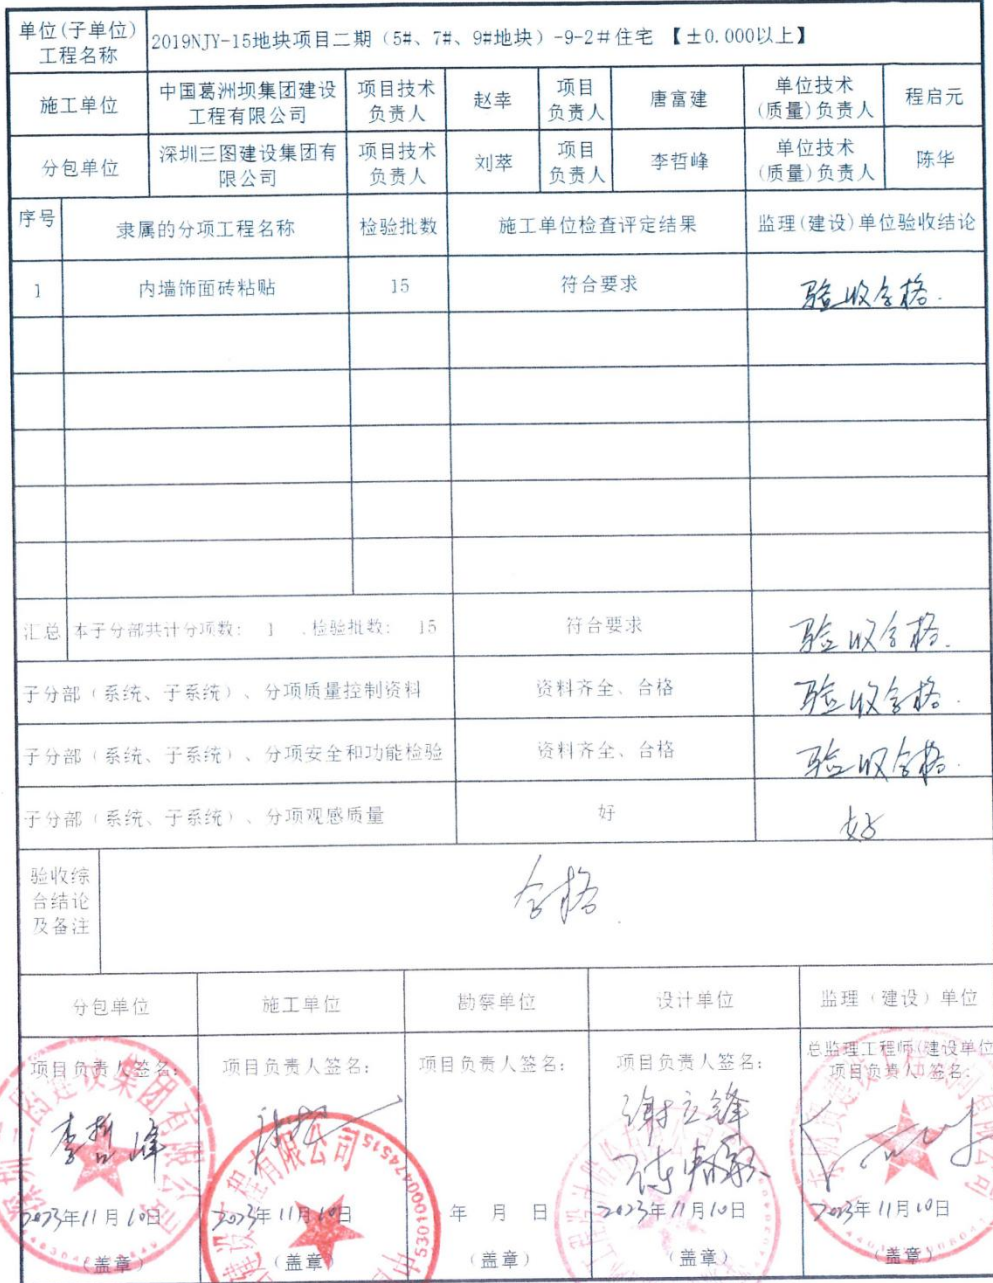 单位(子单位)
工程名称
2019NJY-15地块项目二期（5#、7#、9#地块）-9-2#住宅 【±0.000以上】
施工单位
中国葛洲坝集团建设
工程有限公司
项目技术
负责人
赵幸
项目
负责人
唐富建
单位技术
(质量)负责人
程启元
分包单位
深圳三图建设集团有
限公司
项目技术
负责人
刘萃
项目
负责人
李哲峰
单位技术
(质量)负责人
陈华
序号
隶属的分项工程名称
检验批数
施工单位检查评定结果
监理(建设)单位验收结论
1
内墙饰面砖粘贴
15
符合要求
验收合格.
汇总
本子分部共计分项数: 1 ,检验批数: 15
符合要求
验收合格.
子分部（系统、子系统）、分项质量控制资料
资料齐全、合格
验收合格.
子分部（系统、子系统）、分项安全和功能检验
资料齐全、合格
验收合格.
子分部（系统、子系统）、分项观感质量
好
好
验收综
合结论
及备注
合格.
分包单位
施工单位
勘察单位
设计单位
监理（建设）单位
项目负责人签名:
李哲峰
2023年11月10日
(盖章)
项目负责人签名:
2023年11月10日
(盖章)
项目负责人签名:
年 月 日
(盖章)
项目负责人签名:
谢立锋
2023年11月10日
(盖章)
总监理工程师(建设单位
项目负责人)签名:
2023年11月10日
(盖章)